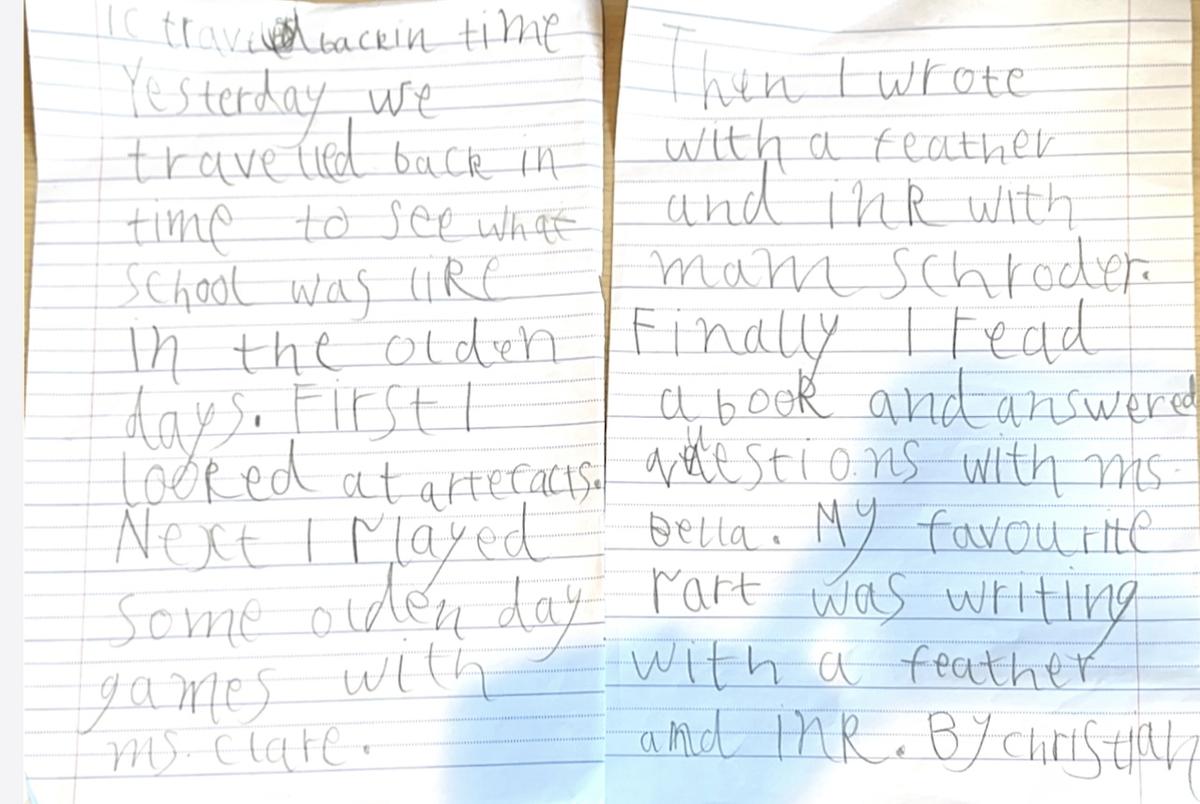 1C travelled back in time
Yesterday we
travelled back in
time to see what
school was like
in the olden
days. First I
looked at artefacts.
Next I Played
some olden day
games with
ms. Clare.
Then I wrote
with a feather
and ink with
mam Schroder.
Finally I read
a book and answered
questions with ms
Bella. My favourite
Part was writing
with a feather
and ink. By christian